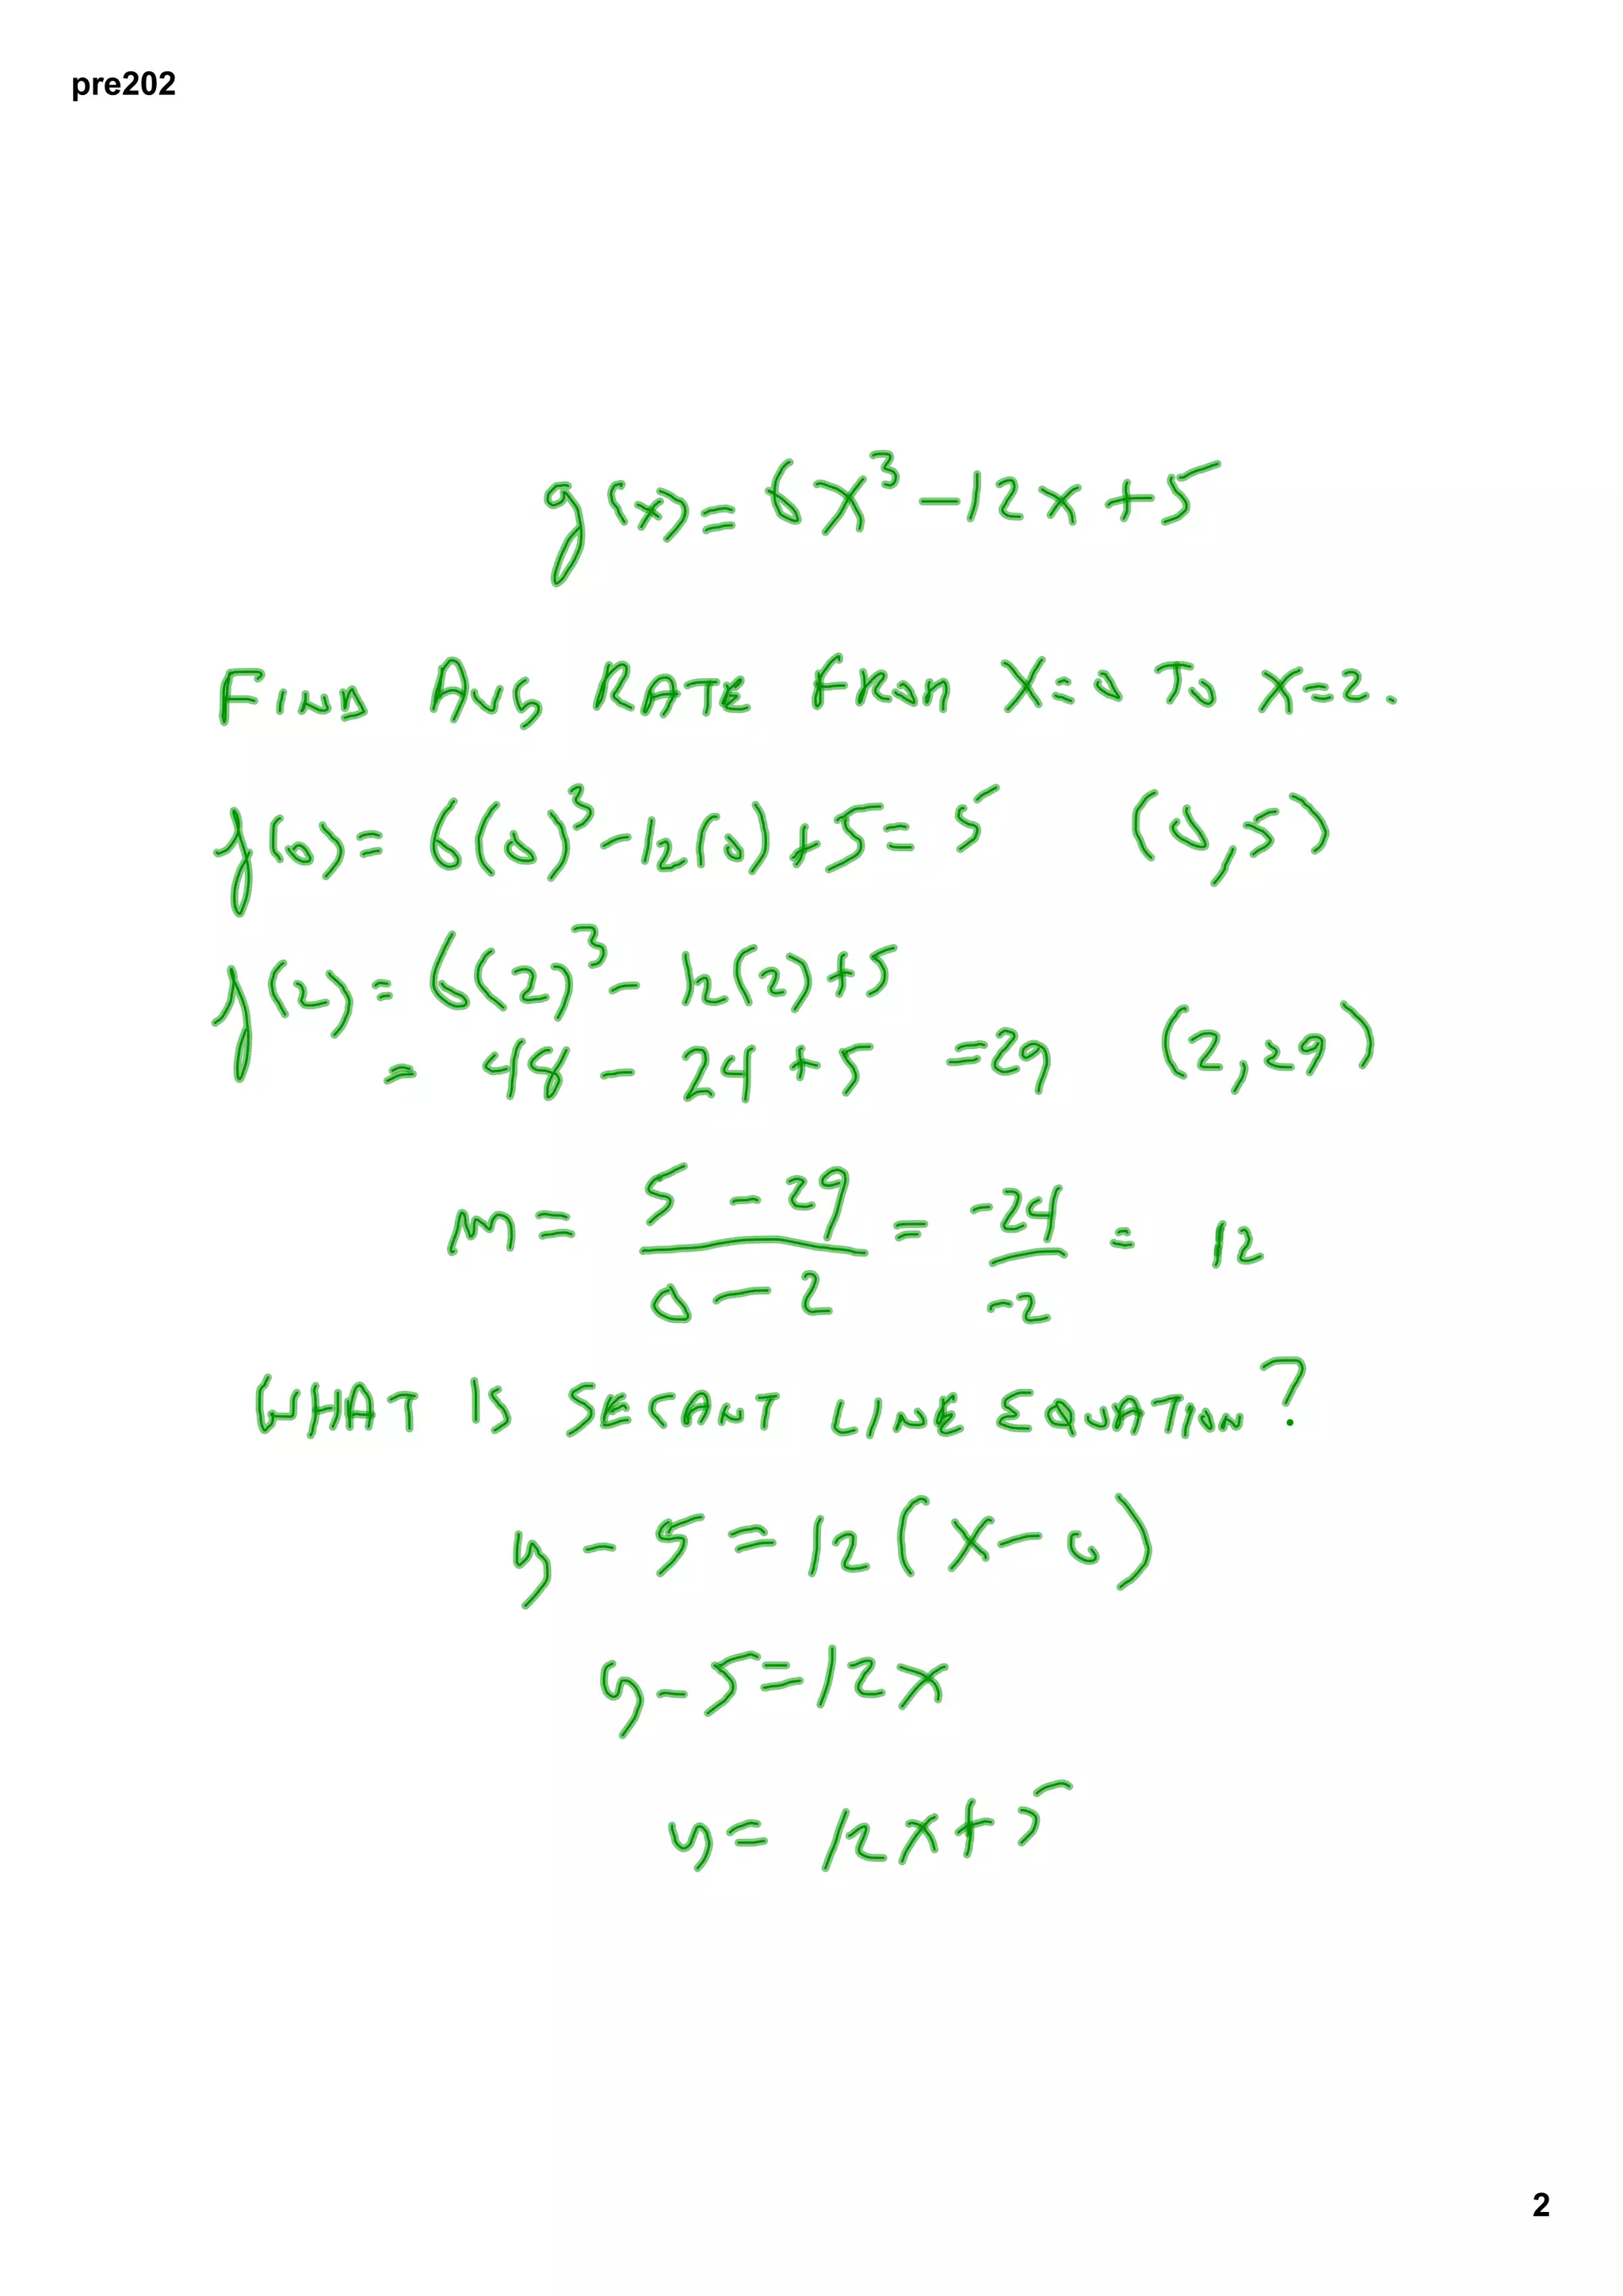 pre202
g(x) = 6x³ - 12x + 5
FIND AVG RATE FROM X=0 TO X=2.
f(0) = 6(0)³ - 12(0) + 5 = 5 (0,5)
f(2) = 6(2)³ - 12(2) + 5
= 48 - 24 + 5 = 29 (2,29)
m = (5 - 29)/(0 - 2) = -24/-2 = 12
WHAT IS SECANT LINE EQUATION?
y - 5 = 12(x - 0)
y - 5 = 12x
y = 12x + 5
2